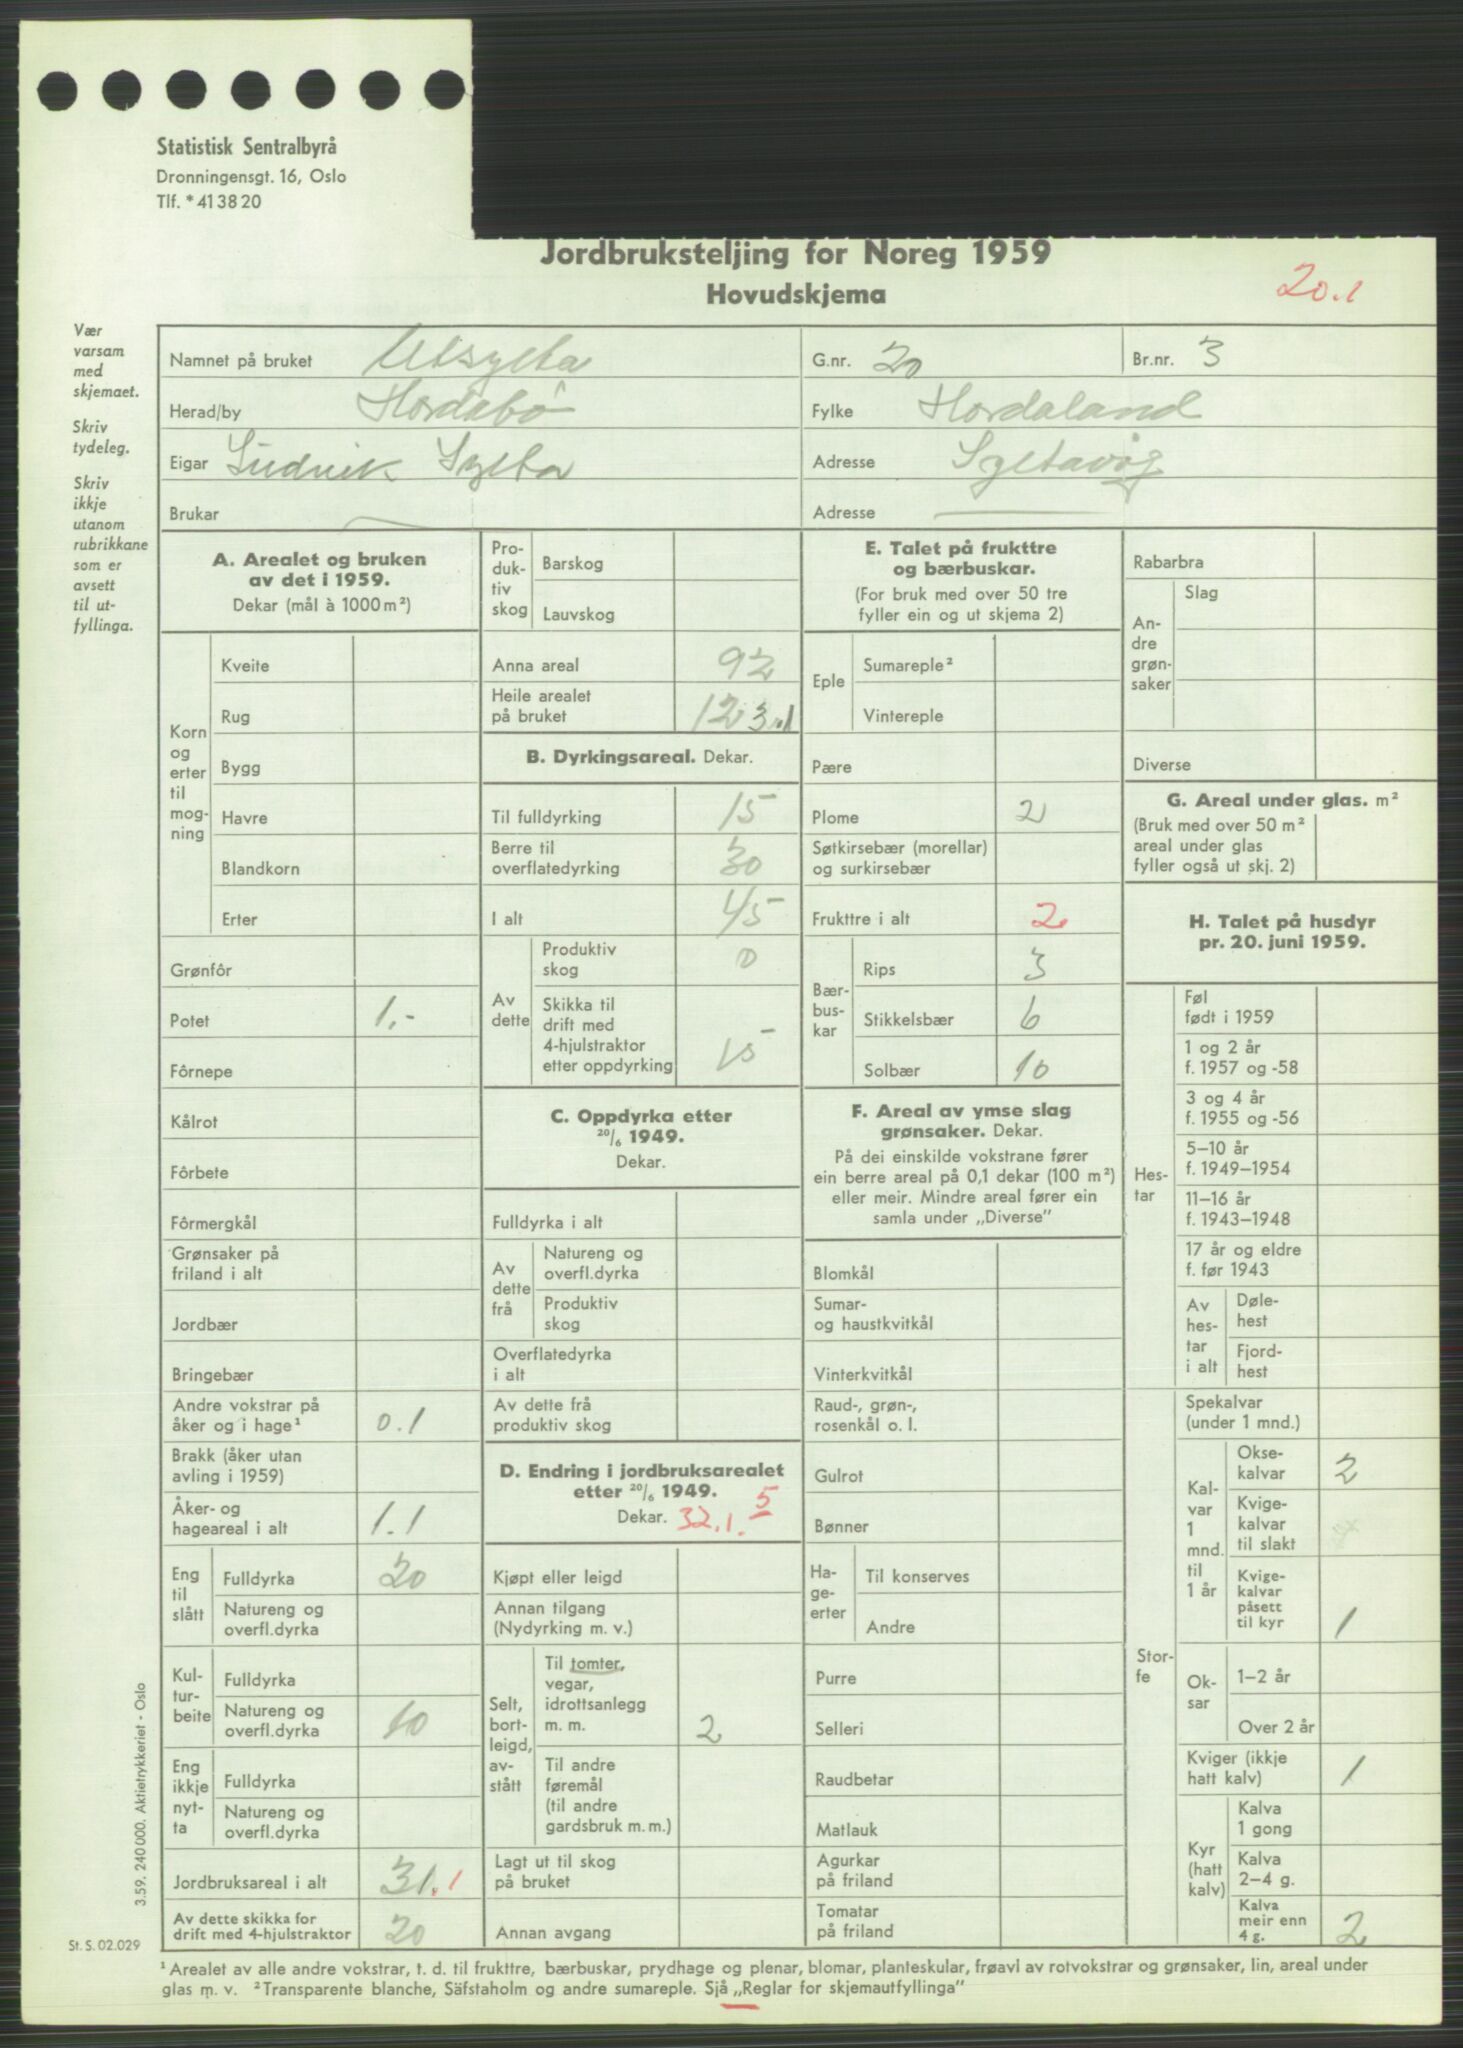 Statistisk Sentralbyrå
Dronningensgt. 16, Oslo
Tlf. * 41 38 20
Jordbruksteljing for Noreg 1959
Hovudskjema
20.1
Vær
varsam
med
skjemaet.
Skriv
tydeleg.
Skriv
ikkje
utanom
rubrikkane
som er
avsett
til ut-
fyllinga.
Namnet på bruket Utsylta G.nr. 20 Br.nr. 3
Herad/by Hordabö Fylke Hordaland
Eigar Ludvik Sylta Adresse Syltavåg
Brukar — Adresse —
A. Arealet og bruken
av det i 1959.
Dekar (mål à 1000 m²)
Korn
og
erter
til
mog-
ning
Kveite
Rug
Bygg
Havre
Blandkorn
Erter
Grønfôr
Potet 1.-
Fôrnepe
Kålrot
Fôrbete
Fôrmergkål
Grønsaker på
friland i alt
Jordbær
Bringebær
Andre vokstrar på
åker og i hage¹ 0.1
Brakk (åker utan
avling i 1959)
Åker- og
hageareal i alt 1.1
Eng
til
slått
Fulldyrka 20
Natureng og
overfl.dyrka
Kul-
tur-
beite
Fulldyrka
Natureng og
overfl.dyrka 10
Eng
ikkje
nyt-
ta
Fulldyrka
Natureng og
overfl.dyrka
Jordbruksareal i alt 31.1
Av dette skikka for
drift med 4-hjulstraktor 20
Pro-
duk-
tiv
skog
Barskog
Lauvskog
Anna areal 92
Heile arealet
på bruket 123.1
B. Dyrkingsareal. Dekar.
Til fulldyrking 15
Berre til
overflatedyrking 30
I alt 45
Av
dette
Produktiv
skog 0
Skikka til
drift med
4-hjulstraktor
etter oppdyrking 15
C. Oppdyrka etter
20/6 1949.
Dekar.
Fulldyrka i alt
Av
dette
frå
Natureng og
overfl.dyrka
Produktiv
skog
Overflatedyrka
i alt
Av dette frå
produktiv skog
D. Endring i jordbruksarealet
etter 20/6 1949.
Dekar. 32.1.5
Kjøpt eller leigd
Annan tilgang
(Nydyrking m. v.)
Selt,
bort-
leigd,
av-
stått
Til tomter,
vegar,
idrottsanlegg
m. m. 2
Til andre
føremål
(til andre
gardsbruk m. m.)
Lagt ut til skog
på bruket
Annan avgang
E. Talet på frukttre
og bærbuskar.
(For bruk med over 50 tre
fyller ein og ut skjema 2)
Eple
Sumareple²
Vintereple
Pære
Plome 2
Søtkirsebær (morellar)
og surkirsebær
Frukttre i alt 2
Bær-
bus-
kar
Rips 3
Stikkelsbær 6
Solbær 10
F. Areal av ymse slag
grønsaker. Dekar.
På dei einskilde vokstrane fører
ein berre areal på 0,1 dekar (100 m²)
eller meir. Mindre areal fører ein
samla under „Diverse”
Blomkål
Sumar-
og haustkvitkål
Vinterkvitkål
Raud-, grøn-,
rosenkål o. l.
Gulrot
Bønner
Ha-
ge-
erter
Til konserves
Andre
Purre
Selleri
Raudbetar
Matlauk
Agurkar
på friland
Tomatar
på friland
Rabarbra
An-
dre
grøn-
saker
Slag
Diverse
G. Areal under glas. m²
(Bruk med over 50 m²
areal under glas
fyller også ut skj. 2)
H. Talet på husdyr
pr. 20. juni 1959.
Hes-
tar
Føl
født i 1959
1 og 2 år
f. 1957 og -58
3 og 4 år
f. 1955 og -56
5–10 år
f. 1949–1954
11–16 år
f. 1943–1948
17 år og eldre
f. før 1943
Av
hes-
tar
i alt
Døle-
hest
Fjord-
hest
Stor-
fe
Spekalvar
(under 1 mnd.)
Kal-
var
1
mnd.
til
1 år
Okse-
kalvar 2
Kvige-
kalvar
til slakt
Kvige-
kalvar
påsett
til kyr 1
Ok-
sar
1–2 år
Over 2 år
Kviger (ikkje
hatt kalv) 1
Kyr
(hatt
kalv)
Kalva
1 gong
Kalva
2–4 g.
Kalva
meir enn
4 g. 2
3.59. 240 000. Aktietrykkeriet - Oslo
St. S. 02.029
¹ Arealet av alle andre vokstrar, t. d. til frukttre, bærbuskar, prydhage og plenar, blomar, planteskular, frøavl av rotvokstrar og grønsaker, lin, areal under
glas m. v. ² Transparente blanche, Säfstaholm og andre sumareple. Sjå „Reglar for skjemautfyllinga”